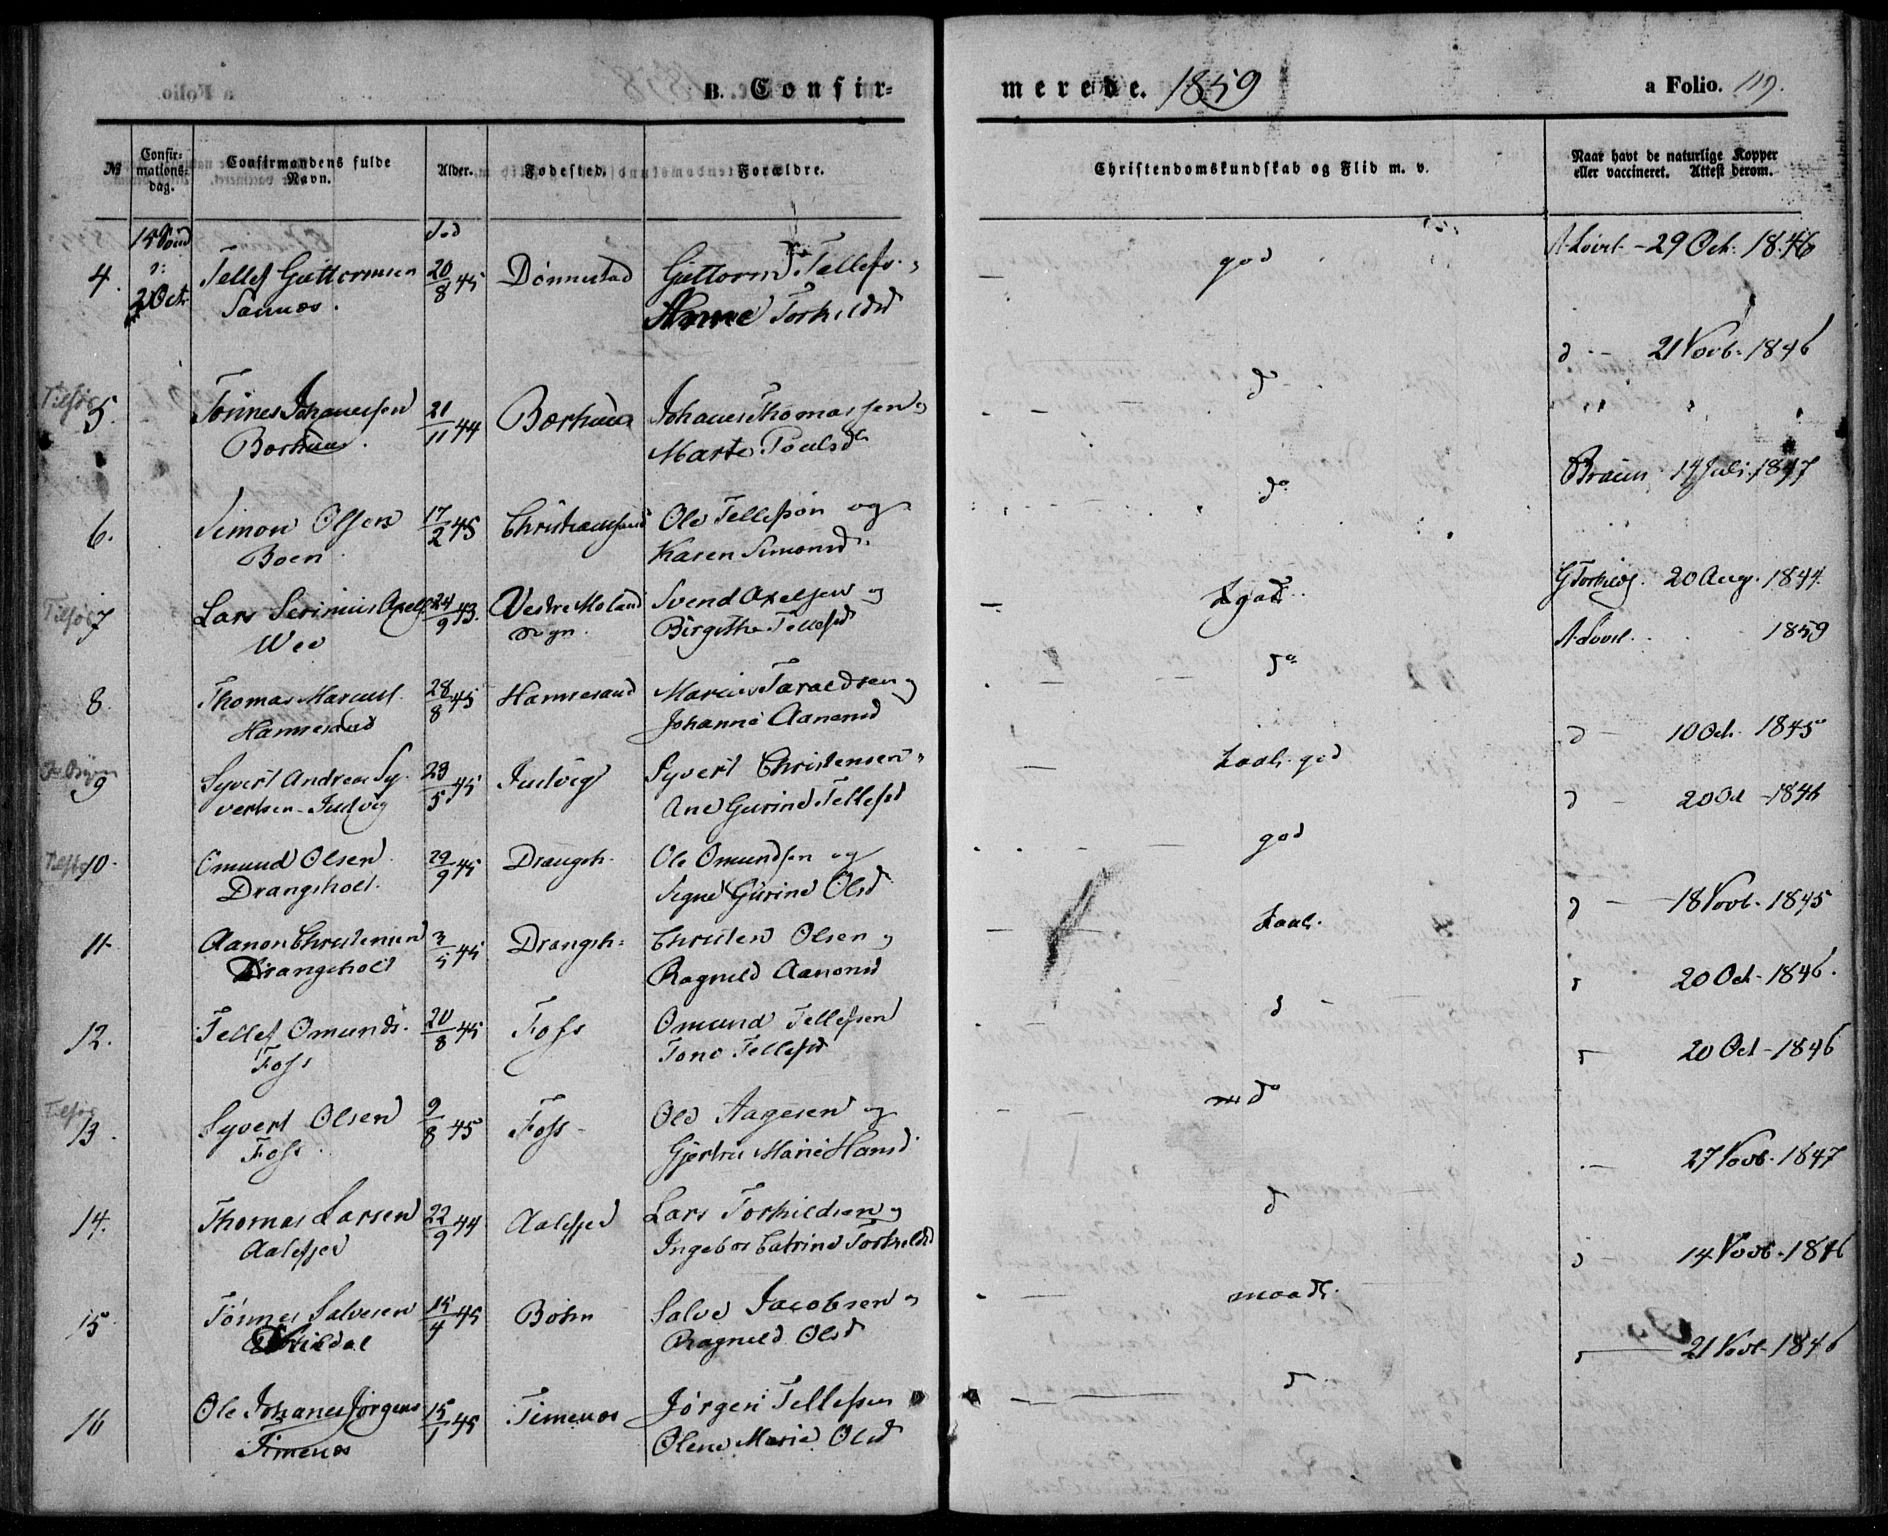 B. Confir- merede. 1859 a Folio. 119.
№ Confir-mations-dag. Confirmandens fulde Navn. Alder. Fødested. Forældre. Christendomskundskab og Flid m. v. Naar havt de naturlige Kopper eller vaccineret. Attest derom.
4. 2 Oct Tellef Guttormsen 20/8 45 Dønnestad Guttorm Tellefs. god 29 Oct. 1846
Sannæs. Anne Torkildsd
d 21 Novb. 1846
5. Tönnes Johannessen 21/11 44 Bærhuus Johannes Thomassen d
Bærhuus. Marte Poulsd
Braun 14 Juli 1847
6. Simon Olsen 17/2 45 Christiansand Ole Tellefsøn og do
Boen. Karen Simonsd.
7 Lars Serinius Axels 24/9 43. Vestre Moland Svend Axelsen og 20 Aug. 1844.
Wee Sogn. Birgithe Tellefsd 1859
8. Thomas Marcus. 28/8 45 Hannesand Marcus Taraldsen og do
Hannesand Johanne Aanonsd d 10 Oct. 1845
9 Syvert Andreas Sy- 23/5 45 Indvig Syvert Christensen god
vertsen Indvig Ane Gurine Tellefsd d 20 Oct 1846
10. Omund Olsen 29/9 45 Drangsh. Ole Omundsen og god
Drangsholt. Signe Gurine Olsd d 18 Novb. 1845
11. Aanon Christensen 3/5 45 Drangsh. Christen Olsen og taal.
Drangsholt Ragnild Aanonsd 20 Oct. 1846.
12. Tellef Omunds. 20/8 45 Foss Omund Tellefsen d
Foss Tone Tellefsd 20 Oct 1846
13. Syvert Olsen 9/8 45 Foss Ole Aagesen og
Foss Gjertru Marie Hansd. 27 Novb. 1847
14. Thomas Larsen 22/9 44 Aalefjed Lars Torkildsen og d
Aalefjed Ingebor Catrine Torkilds d 14 Novb. 1846
15. Tønnes Salvesen 15/4 45 Bøhn Salve Jacobsen og maadl.
Ragnild Olsd 21 Novb. 1846
16 Ole Johannes Jørgens 15/1 45 Timenæs Jørgen Tellefsen d
Timenæs Olene Marie Olsd